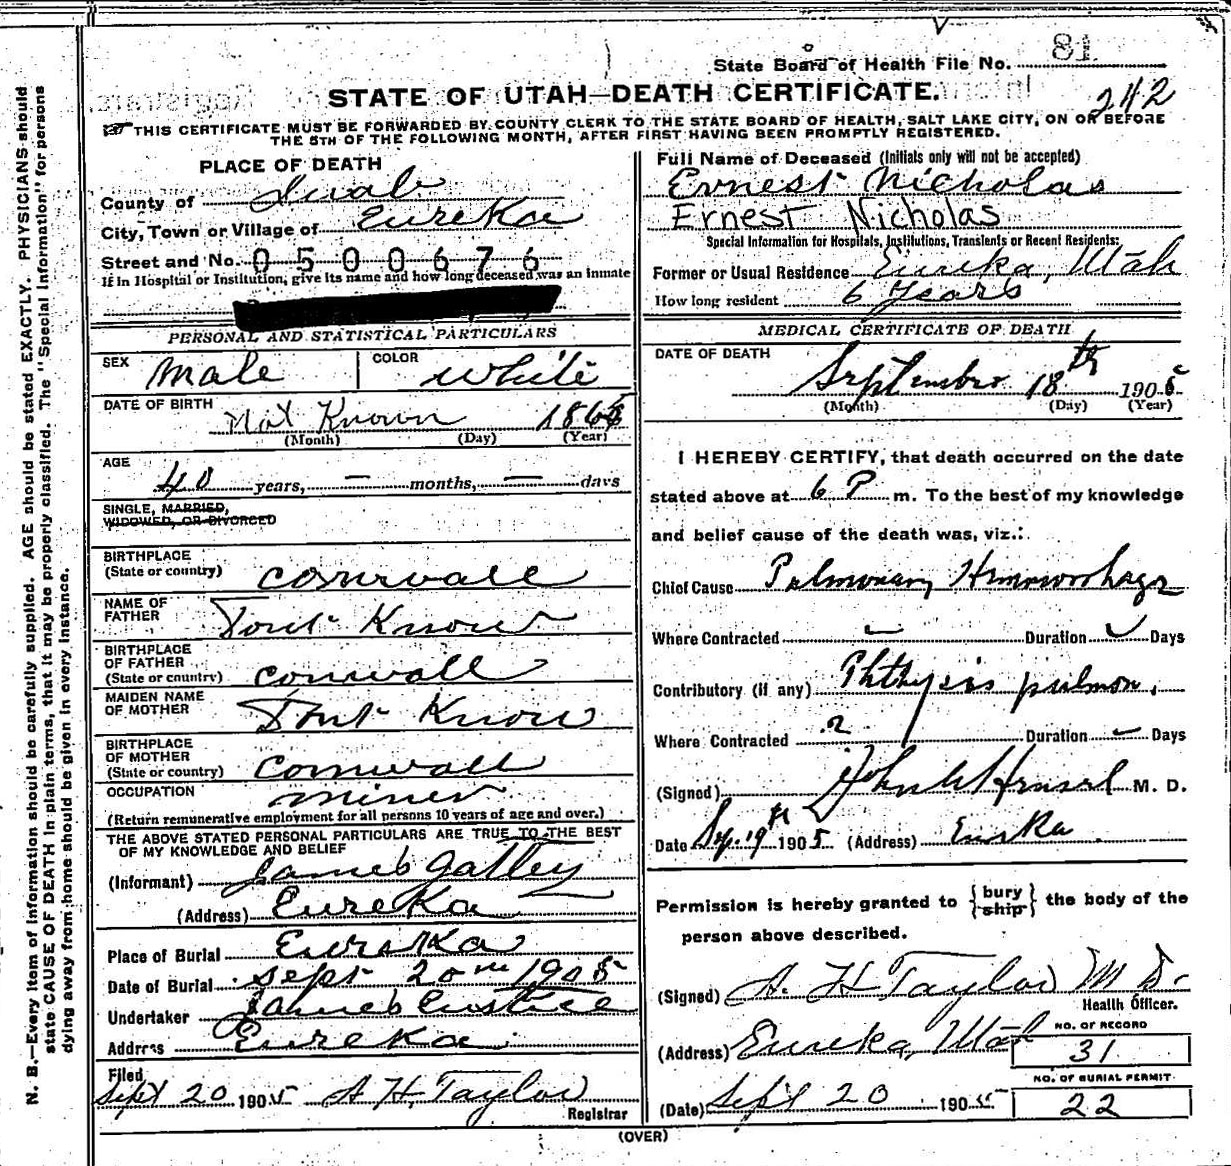 State Board of Health File No. 81
STATE OF UTAH—DEATH CERTIFICATE.
242
THIS CERTIFICATE MUST BE FORWARDED BY COUNTY CLERK TO THE STATE BOARD OF HEALTH, SALT LAKE CITY, ON OR BEFORE
THE 5TH OF THE FOLLOWING MONTH, AFTER FIRST HAVING BEEN PROMPTLY REGISTERED.
PLACE OF DEATH
County of Juab
City, Town or Village of Eureka
Street and No. 0500676
If in Hospital or Institution, give its name and how long deceased was an inmate
PERSONAL AND STATISTICAL PARTICULARS
SEX Male COLOR White
DATE OF BIRTH Not Known 1865
(Month) (Day) (Year)
AGE
40 years, — months, — days
SINGLE, MARRIED,
WIDOWED, OR DIVORCED
BIRTHPLACE
(State or country) Cornwall
NAME OF
FATHER Dont Know
BIRTHPLACE
OF FATHER
(State or country) Cornwall
MAIDEN NAME
OF MOTHER Dont Know
BIRTHPLACE
OF MOTHER
(State or country) Cornwall
OCCUPATION miner
(Return remunerative employment for all persons 10 years of age and over.)
THE ABOVE STATED PERSONAL PARTICULARS ARE TRUE TO THE BEST
OF MY KNOWLEDGE AND BELIEF
(Informant) James Gatley
(Address) Eureka
Place of Burial Eureka
Date of Burial Sept 20th 1905
Undertaker James Eustice
Address Eureka
Filed
Sept 20 1905 A. H. Taylor
Registrar
Full Name of Deceased (Initials only will not be accepted)
Ernest Nicholas
Ernest Nicholas
Special Information for Hospitals, Institutions, Transients or Recent Residents:
Former or Usual Residence Eureka, Utah
How long resident 6 Years
MEDICAL CERTIFICATE OF DEATH
DATE OF DEATH
September 18th 1905
(Month) (Day) (Year)
I HEREBY CERTIFY, that death occurred on the date
stated above at 6 P m. To the best of my knowledge
and belief cause of the death was, viz.:
Chief Cause Pulmonary Hemorrhage
Where Contracted — Duration — Days
Contributory (if any) Phthysis pulmon.
Where Contracted ? Duration — Days
(Signed) John Hensel M. D.
Date Sep. 19th 1905 (Address) Eureka
Permission is hereby granted to {bury ship} the body of the
person above described.
(Signed) A. H. Taylor M D.
Health Officer.
(Address) Eureka, Utah
NO. OF RECORD
31
(Date) Sept 20 1905
NO. OF BURIAL PERMIT
22
(OVER)
N. B.—Every item of information should be carefully supplied. AGE should be stated EXACTLY. PHYSICIANS should
state CAUSE OF DEATH in plain terms, that it may be properly classified. The "Special Information" for persons
dying away from home should be given in every instance.